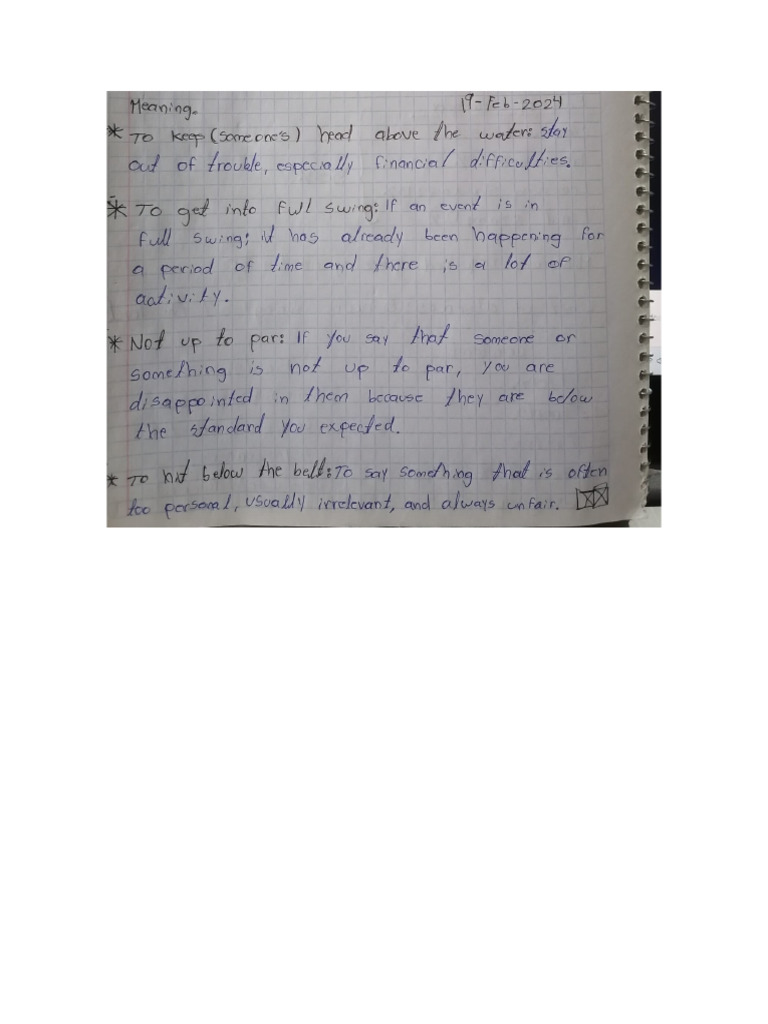 Meaning.
19-Feb-2024
* To keep (someone's) head above the water: stay
out of trouble, especially financial difficulties.
* To get into full swing: If an event is in
full swing; it has already been happening for
a period of time and there is a lot of
activity.
* Not up to par: If you say that someone or
something is not up to par, you are
disappointed in them because they are below
the standard you expected.
* To hit below the belt: To say something that is often
too personal, usually irrelevant, and always unfair.